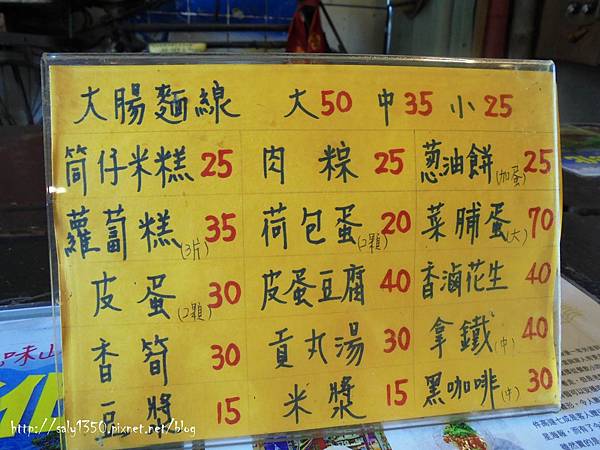 大腸麵線 大50 中35 小25
筒仔米糕25 肉粽25 葱油餅(加蛋)25
蘿蔔糕(3片)35 荷包蛋(2顆)20 菜脯蛋(大)70
皮蛋(2顆)30 皮蛋豆腐40 香滷花生40
香筍30 貢丸湯30 拿鐵(中)40
豆漿15 米漿15 黑咖啡(中)30
http://saly1350.pixnet.net/blog